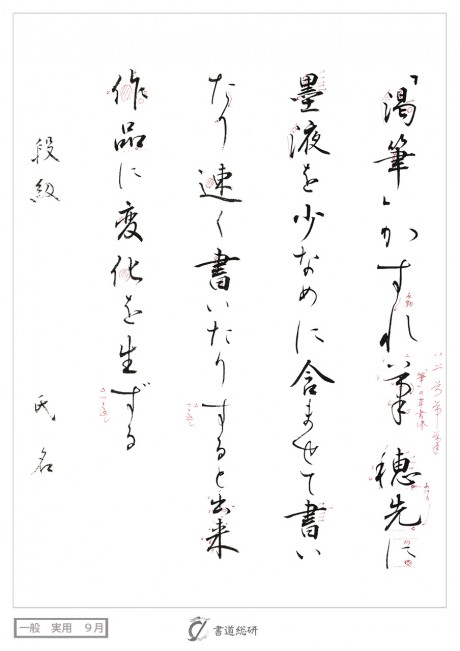 「渇筆」かすれ筆 穂先に
墨液を少なめに含ませて書い
たり速く書いたりすると出来
作品に変化を生ずる
段級 氏名
一般 実用 9月
書道総研